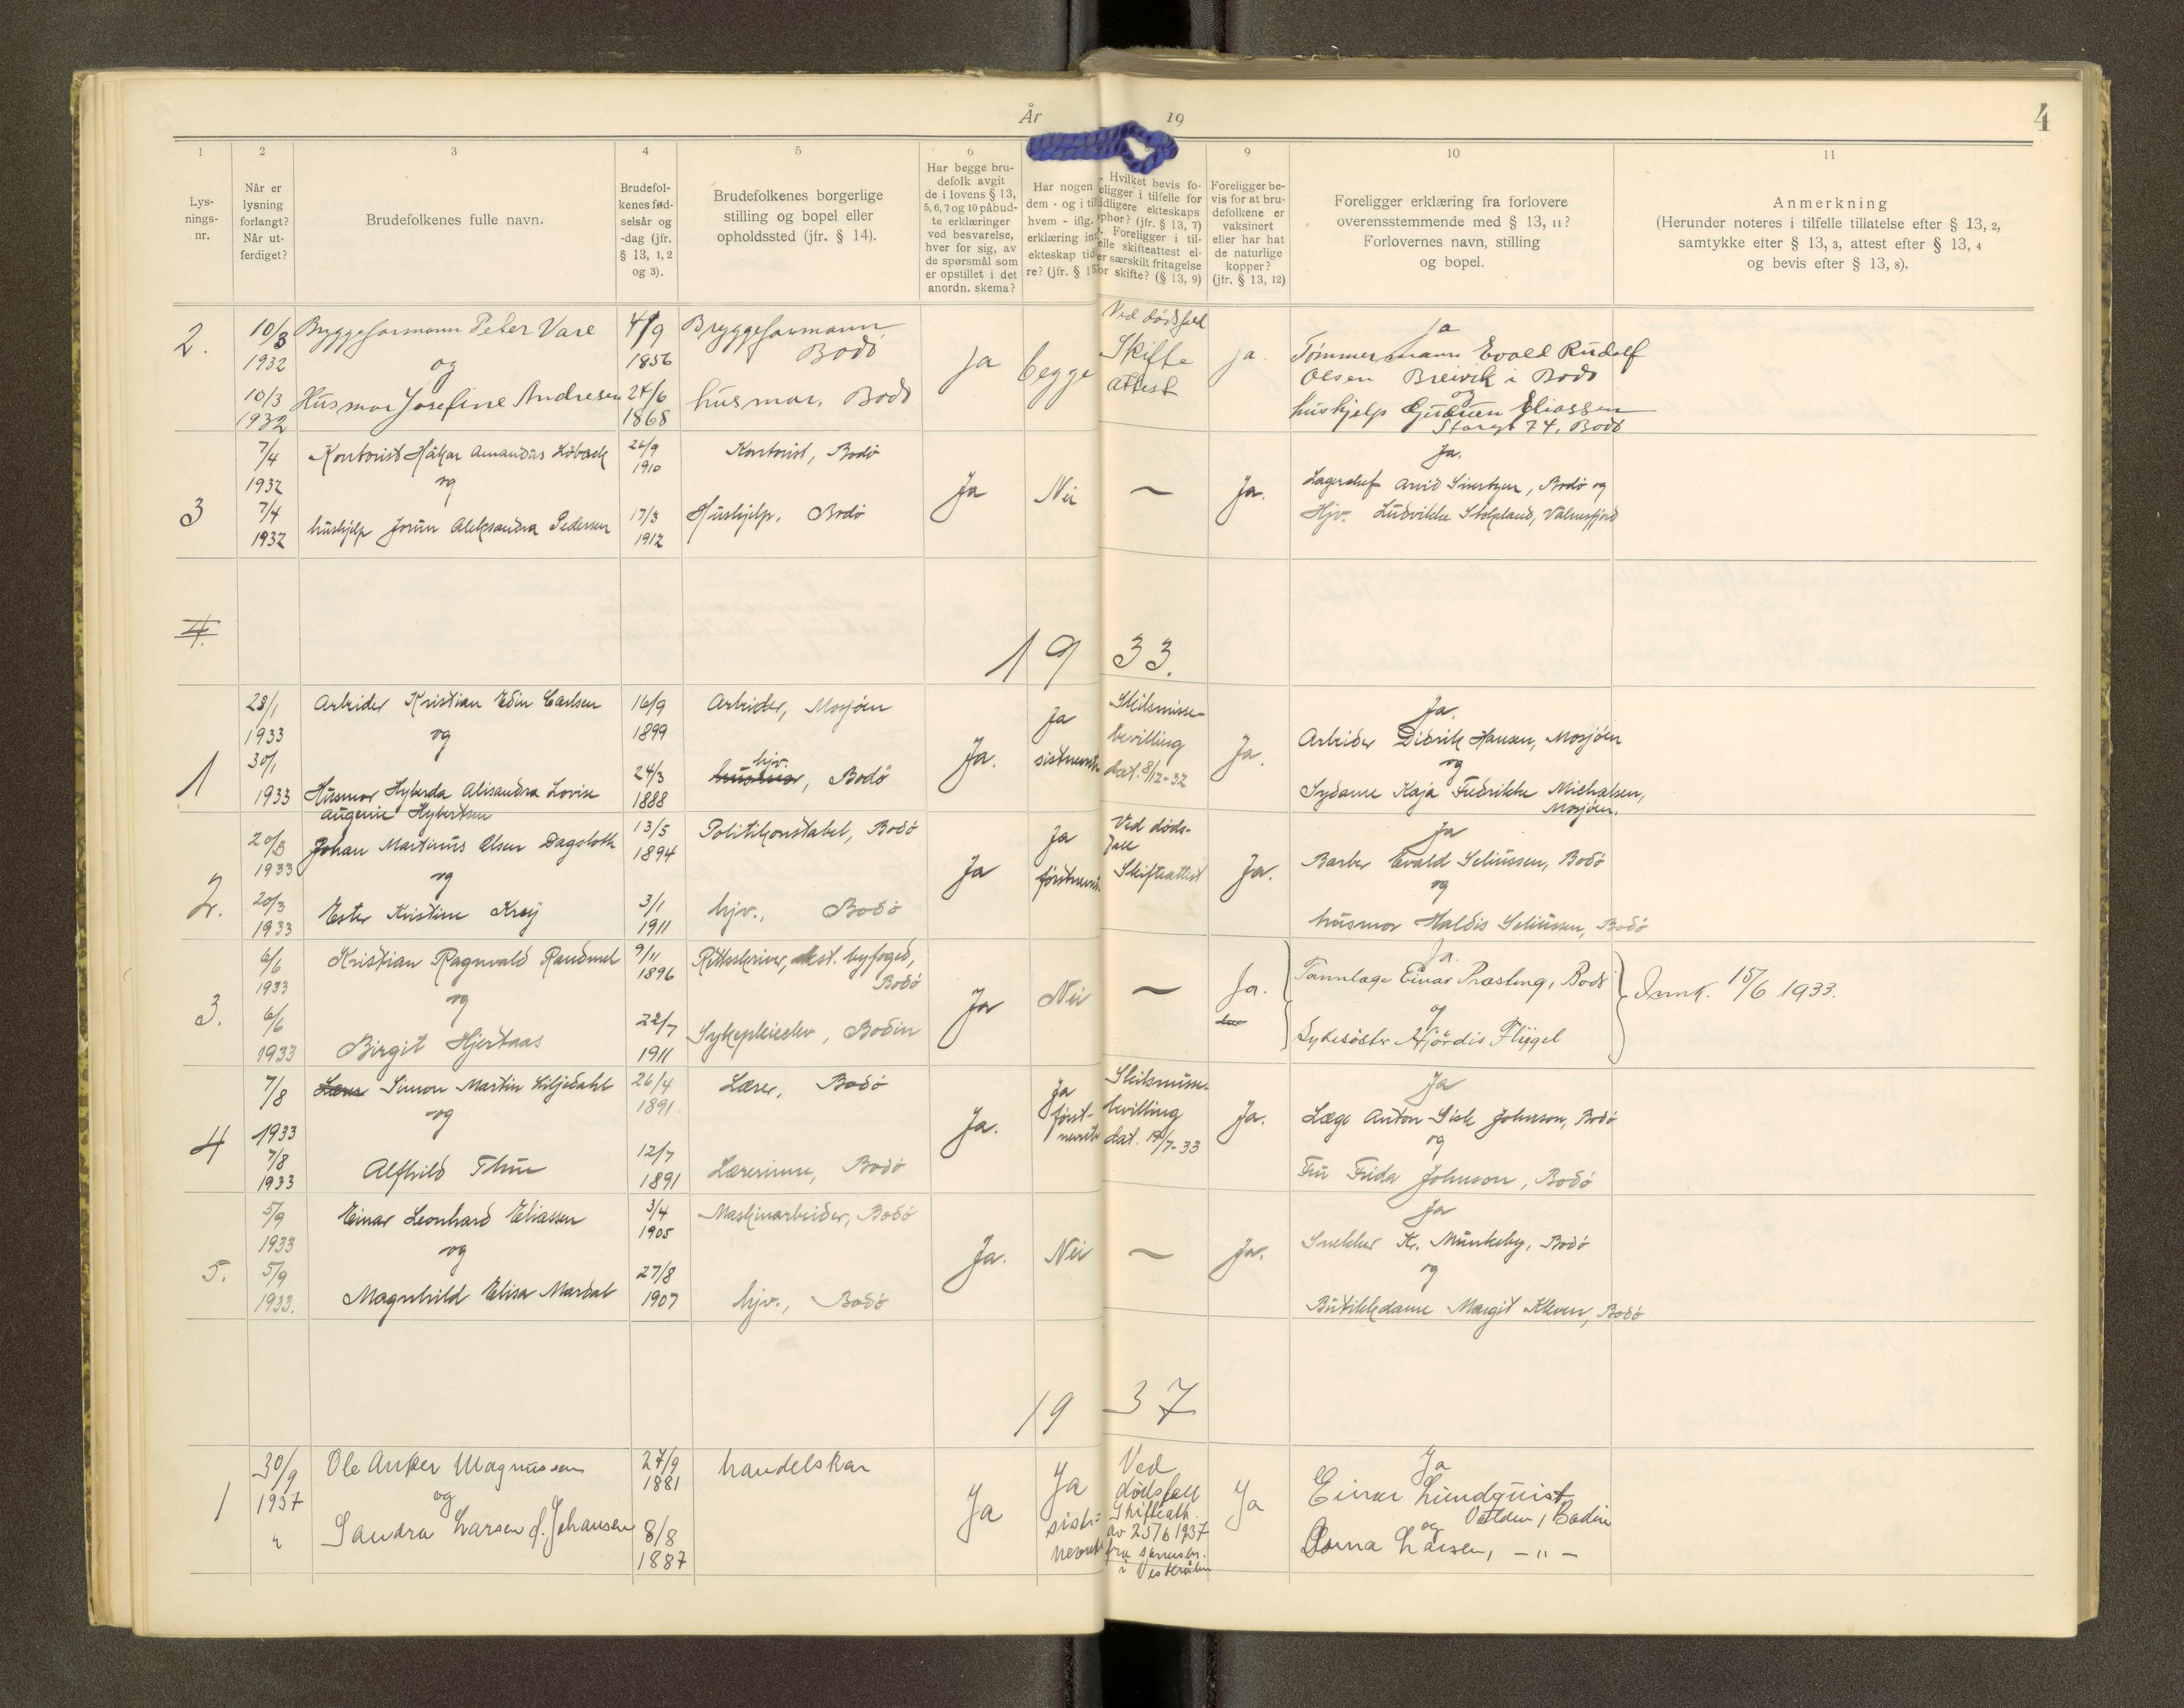 År 19
4
1
Lys-
nings-
nr.
2
Når er
lysning
forlangt?
Når ut-
ferdiget?
3
Brudefolkenes fulle navn.
4
Brudefol-
kenes fød-
selsår og
-dag (jfr.
§ 13, 1, 2
og 3).
5
Brudefolkenes borgerlige
stilling og bopel eller
opholdssted (jfr. § 14).
6
Har begge bru-
defolk avgit
de i lovens § 13,
5, 6, 7 og 10 påbud-
te erklæringer
ved besvarelse,
hver for sig, av
de spørsmål som
er opstillet i det
anordn. skema?
Har nogen
dem - og i til
hvem - iflg.
erklæring in
ekteskap tid
re? (jfr. § 1
Hvilket bevis fo-
eligger i tilfelle for
idligere ekteskaps
phør? (jfr. § 13, 7)
Foreligger i til-
elle skifteattest el-
er særskilt fritagelse
or skifte? (§ 13, 9)
9
Foreligger be-
vis for at bru-
defolkene er
vaksinert
eller har hat
de naturlige
kopper?
(jfr. § 13, 12)
10
Foreligger erklæring fra forlovere
overensstemmende med § 13, 11?
Forlovernes navn, stilling
og bopel.
11
Anmerkning
(Herunder noteres i tilfelle tillatelse efter § 13, 2,
samtykke efter § 13, 3, attest efter § 13, 4
og bevis efter § 13, 8).
2.
10/3
1932
10/3
1932
Byggeformann Peter Vare
og
Husmor Josefine Andresen
4/9
1856
24/6
1868
Bryggeformann
Bodö
husmor. Bodö
Ja
begge
Ved dödsfall
Skifte
attest
Ja.
Ja
Tömmermann Evald Rudolf
Olsen Breivik i Bodö
og
hushjelp Gudrun Eliassen
Storgt 74. Bodö
3
7/4
1932
7/4
1932
Kontorist Håkon Amandus Löbach
og
hushjelp Jorun Aleksandra Pedersen
26/9
1910
17/3
1912
Kontorist, Bodø
Hushjelp. Bodø
Ja
Nei
—
Ja.
Ja.
Lagerchef Arvid Sivertsen, Bodø og
Hjv. Ludvikke Stolpland, Valnesfjord
4.
1933.
1
28/1
1933
30/1
1933
Arbeider Kristian Edin Carlsen
og
Husmor Hyberda Alisandra Lovise
Augenie Hybertsen
16/9
1899
24/3
1888
Arbeider, Mosjøen
hjv.
husmor, Bodö
Ja.
Ja
sistnevnte
Skilsmisse-
bevilling
dat. 8/12-32
Ja.
Ja.
Arbeider Didrik Hansen, Mosjöen
og
Sydame Kaja Fredrikke Michalsen,
Mosjöen.
2.
20/3
1933
20/3
1933
Johan Martinus Olsen Dagsloth
og
Ester Kristine Krey
13/5
1894
3/1
1911
Politikonstabel, Bodø
hjv., Bodø
Ja
Ja
førstnevnt.
Ved døds-
fall
Skifteattest
Ja.
Ja
Barber Evald Seliussen, Bodø
og
husmor Haldis Seliussen, Bodø
3.
6/6
1933
6/6
1933
Kristian Ragnvald Raudmel
og
Birgit Hjertaas
9/11
1896
22/7
1911
Rettsskriver, kst. byfoged,
Bodø
Sykepleieelev, Bodin
Ja
Nei
—
Ja.
Ja.
Tannlæge Einar Præsteng, Bodø
og
Sykesøster Hjördis Flügel
Innk. 15/6 1933.
4
7/8
1933
7/8
1933
Lærer Simon Martin Liljedahl
og
Alfhild Thue
26/4
1891
12/7
1891
Lærer, Bodø
Lærerinne, Bodø
Ja.
Ja
først-
nevnte
Skilsmisse-
bevilling
dat. 19/7-33
Ja.
Ja
Læge Anton Sisk Johnson, Bodø
og
Fru Frida Johnson, Bodø
5.
5/9
1933
5/9
1933.
Einar Leonhard Eliassen
og
Magnhild Elisa Mardal
3/4
1905
27/8
1907
Maskinarbeider, Bodø
hjv., Bodø
Ja.
Nei
—
Ja.
Ja
Snekker K. Munkeby, Bodø
og
Butikkdame Margit Kleven, Bodø
1937
1
30/9
1937
"
Ole Anker Magnussen
og
Sandra Larsen f. Johansen
27/9
1881
8/8
1887
handelskar
Ja
Ja
sist-
nevnte
Ved
dødsfall
Skifteatt.
av 25/6 1937
fra sorenskr.
i Vesterålen
Ja
Ja
Einar Lundquist
Valden, Bodin
og
Borna Larsen, -"-